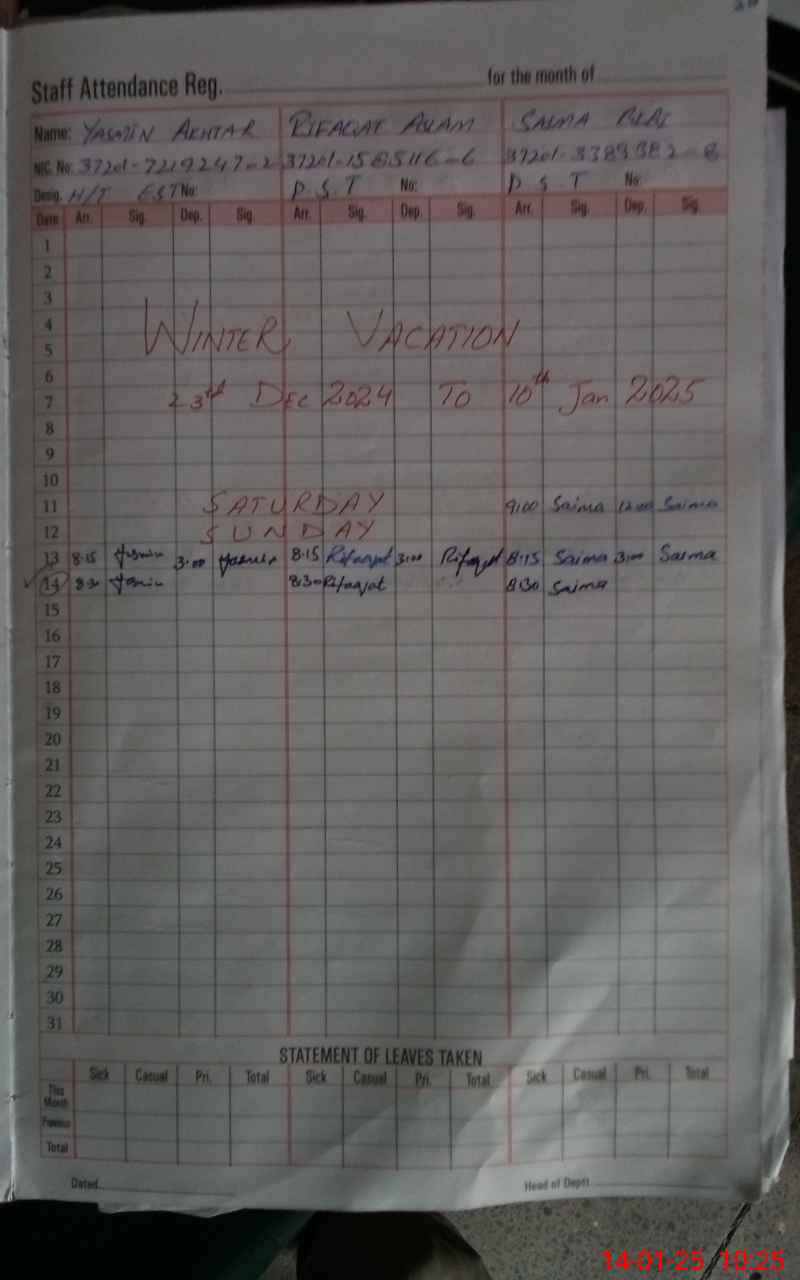 Staff Attendance Reg. for the month of
Name: YASMIN AKHTAR RIFAQAT ASLAM SAIMA BIBI
NIC. No: 37201-7219247-2 37201-1585116-6 37201-3389382-8
Desig. H/T EST No: P.S.T No: P S T No:
Date Arr. Sig. Dep. Sig. Arr. Sig. Dep. Sig. Arr. Sig. Dep. Sig.
1
2
3
4
WINTER VACATION
5
6
7 23rd DEC 2024 TO 10th Jan 2025
8
9
10
11 SATURDAY 9:00 Saima 12:00 Saima
12 SUNDAY
13 8:15 Yasmin 3:00 Yasmin 8:15 Rifaqat 3:00 Rifaqat 8:15 Saima 3:00 Saima
14 8:30 Yasmin 8:30 Rifaqat 8:30 Saima
15
16
17
18
19
20
21
22
23
24
25
26
27
28
29
30
31
STATEMENT OF LEAVES TAKEN
Sick Casual Pri. Total Sick Casual Pri. Total Sick Casual Pri. Total
This Month
Previous
Total
Dated Head of Deptt
14-01-25 10:25